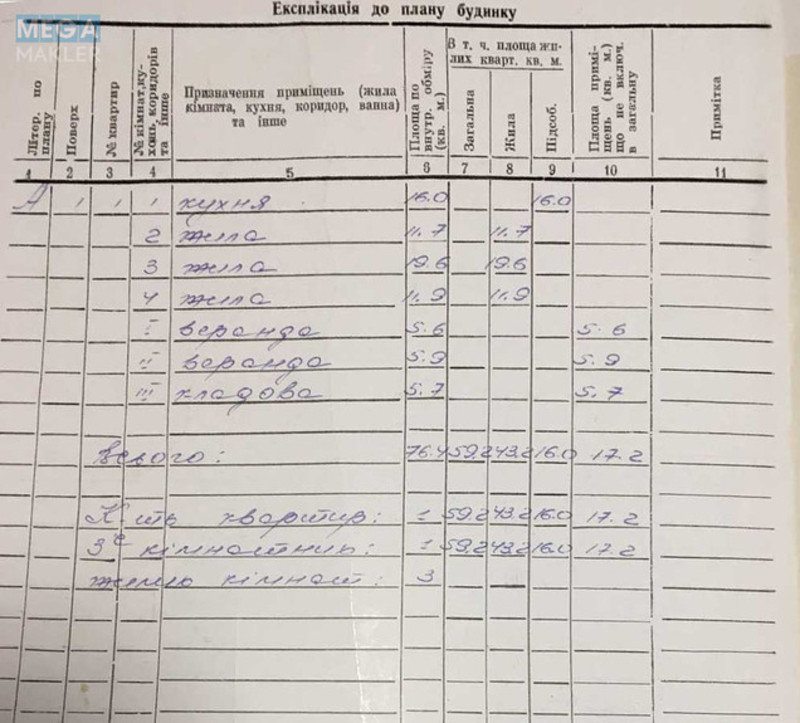 MEGA
MAKLER
Експлікація до плану будинку
Літер. по плану
Поверх
№ квартир
№ кімнат, ку-
хонь, коридорів
та інше
Призначення приміщень (жила
кімната, кухня, коридор, ванна)
та інше
Площа по
внутр. обміру
(кв. м.)
В т. ч. площа жи-
лих кварт. кв. м.
Загальна
Жила
Підсоб.
Площа примі-
щень (кв. м.)
що не включ.
в загальну
Примітка
1 2 3 4 5 6 7 8 9 10 11
А 1 1 1 кухня 16.0 16.0
2 жила 11.7 11.7
3 жила 19.6 19.6
4 жила 11.9 11.9
I веранда 5.6 5.6
II веранда 5.9 5.9
III кладова 5.7 5.7
Всього: 76.4 59.2 43.2 16.0 17.2
К-ть квартир: 1 59.2 43.2 16.0 17.2
3х кімнатних: 1 59.2 43.2 16.0 17.2
жилих кімнат: 3